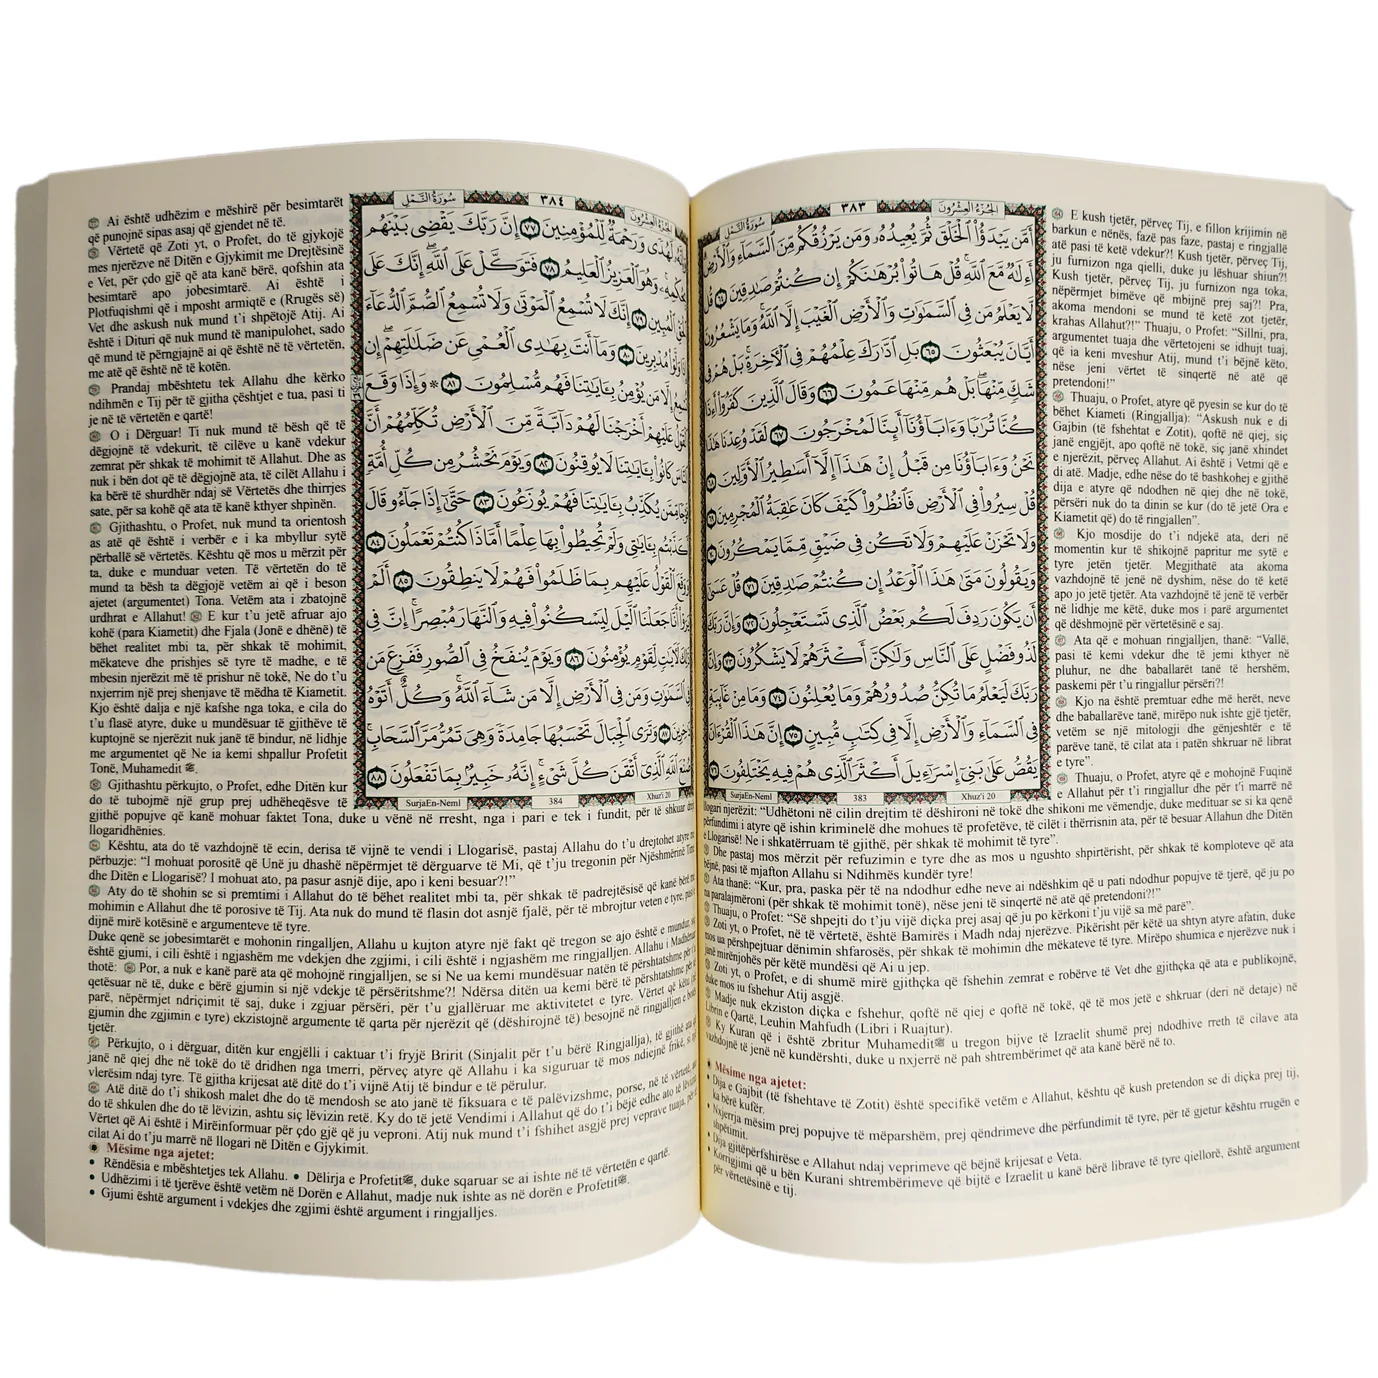 الجزء العشرون
٣٨٣
سورة النمل
أَمَّن يَبْدَؤُا۟ ٱلْخَلْقَ ثُمَّ يُعِيدُهُۥ وَمَن يَرْزُقُكُم مِّنَ ٱلسَّمَآءِ وَٱلْأَرْضِ
أَءِلَٰهٌ مَّعَ ٱللَّهِ قُلْ هَاتُوا۟ بُرْهَٰنَكُمْ إِن كُنتُمْ صَٰدِقِينَ ٦٤ قُل
لَّا يَعْلَمُ مَن فِى ٱلسَّمَٰوَٰتِ وَٱلْأَرْضِ ٱلْغَيْبَ إِلَّا ٱللَّهُ وَمَا يَشْعُرُونَ
أَيَّانَ يُبْعَثُونَ ٦٥ بَلِ ٱدَّٰرَكَ عِلْمُهُمْ فِى ٱلْءَاخِرَةِ بَلْ هُمْ فِى
شَكٍّ مِّنْهَا بَلْ هُم مِّنْهَا عَمُونَ ٦٦ وَقَالَ ٱلَّذِينَ كَفَرُوٓا۟ أَءِذَا
كُنَّا تُرَٰبًا وَءَابَآؤُنَآ أَئِنَّا لَمُخْرَجُونَ ٦٧ لَقَدْ وُعِدْنَا هَٰذَا
نَحْنُ وَءَابَآؤُنَا مِن قَبْلُ إِنْ هَٰذَآ إِلَّآ أَسَٰطِيرُ ٱلْأَوَّلِينَ ٦٨
قُلْ سِيرُوا۟ فِى ٱلْأَرْضِ فَٱنظُرُوا۟ كَيْفَ كَانَ عَٰقِبَةُ ٱلْمُجْرِمِينَ ٦٩
وَلَا تَحْزَنْ عَلَيْهِمْ وَلَا تَكُن فِى ضَيْقٍ مِّمَّا يَمْكُرُونَ ٧٠
وَيَقُولُونَ مَتَىٰ هَٰذَا ٱلْوَعْدُ إِن كُنتُمْ صَٰدِقِينَ ٧١ قُلْ عَسَىٰٓ
أَن يَكُونَ رَدِفَ لَكُم بَعْضُ ٱلَّذِى تَسْتَعْجِلُونَ ٧٢ وَإِنَّ رَبَّكَ
لَذُو فَضْلٍ عَلَى ٱلنَّاسِ وَلَٰكِنَّ أَكْثَرَهُمْ لَا يَشْكُرُونَ ٧٣ وَإِنَّ
رَبَّكَ لَيَعْلَمُ مَا تُكِنُّ صُدُورُهُمْ وَمَا يُعْلِنُونَ ٧٤ وَمَا مِنْ غَآئِبَةٍ
فِى ٱلسَّمَآءِ وَٱلْأَرْضِ إِلَّا فِى كِتَٰبٍ مُّبِينٍ ٧٥ إِنَّ هَٰذَا ٱلْقُرْءَانَ
يَقُصُّ عَلَىٰ بَنِىٓ إِسْرَٰٓءِيلَ أَكْثَرَ ٱلَّذِى هُمْ فِيهِ يَخْتَلِفُونَ ٧٦
SurjaEn-Neml 383 Xhuz'i 20
E kush tjetër, përveç Tij, e fillon krijimin në
barkun e nënës, fazë pas faze, pastaj e ringjallë
atë pasi të ketë vdekur?! Kush tjetër, përveç Tij,
ju furnizon nga qielli, duke ju lëshuar shiun?!
Kush tjetër, përveç Tij, ju furnizon nga toka,
nëpërmjet bimëve që mbijnë prej saj?! Pra,
akoma mendoni se mund të ketë zot tjetër,
krahas Allahut?!” Thuaju, o Profet: “Sillni, pra,
argumentet tuaja dhe vërtetojeni se idhujt tuaj,
që ia keni mveshur Atij, mund t’i bëjnë këto,
nëse jeni vërtet të sinqertë në atë që
pretendoni!”
Thuaju, o Profet, atyre që pyesin se kur do të
bëhet Kiameti (Ringjallja): “Askush nuk e di
Gajbin (të fshehtat e Zotit), qoftë në qiej, siç
janë engjëjt, apo qoftë në tokë, siç janë xhindet
e njerëzit, përveç Allahut. Ai është i Vetmi që e
di atë. Madje, edhe nëse do të bashkohej e gjithë
dija e atyre që ndodhen në qiej dhe në tokë,
përsëri nuk do ta dinin se kur (do të jetë Ora e
Kiametit që) do të ringjallen”.
Kjo mosdije do t’i ndjekë ata, deri në
momentin kur të shikojnë papritur me sytë e
tyre jetën tjetër. Megjithatë ata akoma
vazhdojnë të jenë në dyshim, nëse do të ketë
apo jo jetë tjetër. Ata vazhdojnë të jenë të verbër
në lidhje me këtë, duke mos i parë argumentet
që dëshmojnë për vërtetësinë e saj.
Ata që e mohuan ringjalljen, thanë: “Vallë,
pasi të kemi vdekur dhe të jemi kthyer në
pluhur, ne dhe baballarët tanë të hershëm,
paskemi për t’u ringjallur përsëri?!
Kjo na është premtuar edhe më herët, neve
dhe baballarëve tanë, mirëpo nuk ishte gjë tjetër,
vetëm se një mitologji dhe gënjeshtër e të
parëve tanë, të cilat ata i patën shkruar në librat
e tyre”.
Thuaju, o Profet, atyre që e mohojnë Fuqinë
e Allahut për t’i ringjallur dhe për t’i marrë në
llogari njerëzit: “Udhëtoni në cilin drejtim të dëshironi në tokë dhe shikoni me vëmendje, duke medituar se si ka qenë
përfundimi i atyre që ishin kriminelë dhe mohues të profetëve, të cilët i thërrisnin ata, për të besuar Allahun dhe Ditën
e Llogarisë! Ne i shkatërruam të gjithë, për shkak të mohimit të tyre”.
Dhe pastaj mos mërzit për refuzimin e tyre dhe as mos u ngushto shpirtërisht, për shkak të komploteve që ata
bëjnë, pasi të mjafton Allahu si Ndihmës kundër tyre!
Ata thanë: “Kur, pra, paska për të na ndodhur edhe neve ai ndëshkim që u pati ndodhur popujve të tjerë, që ju po
na paralajmëroni (për shkak të mohimit tonë), nëse jeni të sinqertë në atë që pretendoni?!”
Thuaju, o Profet: “Së shpejti do t’ju vijë diçka prej asaj që ju po kërkoni t’ju vijë sa më parë”.
Zoti yt, o Profet, në të vërtetë, është Bamirës i Madh ndaj njerëzve. Pikërisht për këtë ua shtyn atyre afatin, duke
mos ua përshpejtuar dënimin shfarosës, për shkak të mohimin dhe mëkateve të tyre. Mirëpo shumica e njerëzve nuk i
janë mirënjohës për këtë mundësi që Ai u jep.
Zoti yt, o Profet, e di shumë mirë gjithçka që fshehin zemrat e robërve të Vet dhe gjithçka që ata e publikojnë,
duke mos iu fshehur Atij asgjë.
Madje nuk ekziston diçka e fshehur, qoftë në qiej e qoftë në tokë, që të mos jetë e shkruar (deri në detaje) në
Librin e Qartë, Leuhin Mahfudh (Libri i Ruajtur).
Ky Kuran që i është zbritur Muhamedit ﷺ u tregon bijve të Izraelit shumë prej ndodhive rreth të cilave ata
vazhdojnë të jenë në kundërshti, duke u nxjerrë në pah shtrembërimet që ata kanë bërë në to.
Mësime nga ajetet:
• Dija e Gajbit (të fshehtave të Zotit) është specifikë vetëm e Allahut, kështu që kush pretendon se di diçka prej tij,
ka bërë kufër.
• Nxjerrja mësim prej popujve të mëparshëm, prej qëndrimeve dhe përfundimit të tyre, për të gjetur kështu rrugën e
shpëtimit.
• Dija gjithëpërfshirëse e Allahut ndaj veprimeve që bëjnë krijesat e Veta.
• Korrigjimi që u bën Kurani shtrembërimeve që bijtë e Izraelit u kanë bërë librave të tyre qiellorë, është argument
për vërtetësinë e tij.
الجزء العشرون
٣٨٤
سورة النمل
لَهُدًى وَرَحْمَةٌ لِّلْمُؤْمِنِينَ ٧٧ إِنَّ رَبَّكَ يَقْضِى بَيْنَهُم
بِحُكْمِهِۦ وَهُوَ ٱلْعَزِيزُ ٱلْعَلِيمُ ٧٨ فَتَوَكَّلْ عَلَى ٱللَّهِ إِنَّكَ عَلَى
ٱلْحَقِّ ٱلْمُبِينِ ٧٩ إِنَّكَ لَا تُسْمِعُ ٱلْمَوْتَىٰ وَلَا تُسْمِعُ ٱلصُّمَّ ٱلدُّعَآءَ
إِذَا وَلَّوْا۟ مُدْبِرِينَ ٨٠ وَمَآ أَنتَ بِهَٰدِى ٱلْعُمْىِ عَن ضَلَٰلَتِهِمْ إِن
تُسْمِعُ إِلَّا مَن يُؤْمِنُ بِـَٔايَٰتِنَا فَهُم مُّسْلِمُونَ ٨١ ۞ وَإِذَا وَقَعَ
ٱلْقَوْلُ عَلَيْهِمْ أَخْرَجْنَا لَهُمْ دَآبَّةً مِّنَ ٱلْأَرْضِ تُكَلِّمُهُمْ أَنَّ
ٱلنَّاسَ كَانُوا۟ بِـَٔايَٰتِنَا لَا يُوقِنُونَ ٨٢ وَيَوْمَ نَحْشُرُ مِن كُلِّ أُمَّةٍ
فَوْجًا مِّمَّن يُكَذِّبُ بِـَٔايَٰتِنَا فَهُمْ يُوزَعُونَ ٨٣ حَتَّىٰٓ إِذَا جَآءُو قَالَ
أَكَذَّبْتُم بِـَٔايَٰتِى وَلَمْ تُحِيطُوا۟ بِهَا عِلْمًا أَمَّاذَا كُنتُمْ تَعْمَلُونَ ٨٤
وَوَقَعَ ٱلْقَوْلُ عَلَيْهِم بِمَا ظَلَمُوا۟ فَهُمْ لَا يَنطِقُونَ ٨٥ أَلَمْ
يَرَوْا۟ أَنَّا جَعَلْنَا ٱلَّيْلَ لِيَسْكُنُوا۟ فِيهِ وَٱلنَّهَارَ مُبْصِرًا إِنَّ فِى
ذَٰلِكَ لَءَايَٰتٍ لِّقَوْمٍ يُؤْمِنُونَ ٨٦ وَيَوْمَ يُنفَخُ فِى ٱلصُّورِ فَفَزِعَ مَن
فِى ٱلسَّمَٰوَٰتِ وَمَن فِى ٱلْأَرْضِ إِلَّا مَن شَآءَ ٱللَّهُ وَكُلٌّ أَتَوْهُ
دَٰخِرِينَ ٨٧ وَتَرَى ٱلْجِبَالَ تَحْسَبُهَا جَامِدَةً وَهِىَ تَمُرُّ مَرَّ ٱلسَّحَابِ
صُنْعَ ٱللَّهِ ٱلَّذِىٓ أَتْقَنَ كُلَّ شَىْءٍ إِنَّهُۥ خَبِيرٌۢ بِمَا تَفْعَلُونَ ٨٨
SurjaEn-Neml 384 Xhuz'i 20
Ai është udhëzim e mëshirë për besimtarët
që punojnë sipas asaj që gjendet në të.
Vërtetë që Zoti yt, o Profet, do të gjykojë
mes njerëzve në Ditën e Gjykimit me Drejtësinë
e Vet, për çdo gjë që ata kanë bërë, qofshin ata
besimtarë apo jobesimtarë. Ai është i
Plotfuqishmi që i mposht armiqtë e (Rrugës së)
Vet dhe askush nuk mund t’i shpëtojë Atij. Ai
është i Dituri që nuk mund të manipulohet, sado
që mund të përngjajnë ai që është në të vërtetën,
me atë që është në të kotën.
Prandaj mbështetu tek Allahu dhe kërko
ndihmën e Tij për të gjitha çështjet e tua, pasi ti
je në të vërtetën e qartë!
O i Dërguar! Ti nuk mund të bësh që të
dëgjojnë të vdekurit, të cilëve u kanë vdekur
zemrat për shkak të mohimit të Allahut. Dhe as
nuk i bën dot që të dëgjojnë ata, të cilët Allahu i
ka bërë të shurdhër ndaj së Vërtetës dhe thirrjes
sate, për sa kohë që ata të kanë kthyer shpinën.
Gjithashtu, o Profet, nuk mund ta orientosh
as atë që është i verbër e i ka mbyllur sytë
përballë së vërtetës. Kështu që mos u mërzit për
ta, duke e munduar veten. Të vërtetën do të
mund ta bësh ta dëgjojë vetëm ai që i beson
ajetet (argumentet) Tona. Vetëm ata i zbatojnë
urdhrat e Allahut! E kur t’u jetë afruar ajo
kohë (para Kiametit) dhe Fjala (Jonë e dhënë) të
bëhet realitet mbi ta, për shkak të mohimit,
mëkateve dhe prishjes së tyre të madhe, e të
mbesin njerëzit më të prishur në tokë, Ne do t’u
nxjerrim një prej shenjave të mëdha të Kiametit.
Kjo është dalja e një kafshe nga toka, e cila do
t’u flasë atyre, duke u mundësuar të gjithëve të
kuptojnë se njerëzit nuk janë të bindur, në lidhje
me argumentet që Ne ia kemi shpallur Profetit
Tonë, Muhamedit ﷺ.
Gjithashtu përkujto, o Profet, edhe Ditën kur
do të tubojmë një grup prej udhëheqësve të
gjithë popujve që kanë mohuar faktet Tona, duke u vënë në rresht, nga i pari e tek i fundit, për të shkuar drejt
llogaridhënies.
Kështu, ata do të vazhdojnë të ecin, derisa të vijnë te vendi i Llogarisë, pastaj Allahu do t’u drejtohet atyre me
përbuzje: “I mohuat porositë që Unë ju dhashë nëpërmjet të dërguarve të Mi, që t’ju tregonin për Njëshmërinë Time
dhe Ditën e Llogarisë? I mohuat ato, pa pasur asnjë dije, apo i keni besuar?!”
Aty do të shohin se si premtimi i Allahut do të bëhet realitet mbi ta, për shkak të padrejtësisë që kanë bërë me
mohimin e Allahut dhe të porosive të Tij. Ata nuk do mund të flasin dot asnjë fjalë, për të mbrojtur veten e tyre, pasi e
dijnë mirë kotësinë e argumenteve të tyre.
Duke qenë se jobesimtarët e mohonin ringalljen, Allahu u kujton atyre një fakt që tregon se ajo është e mundur, siç
është gjumi, i cili është i ngjashëm me vdekjen dhe zgjimi, i cili është i ngjashëm me ringjalljen. Allahu i Madhëruar
thotë: Por, a nuk e kanë parë ata që mohojnë ringjalljen, se si Ne ua kemi mundësuar natën të përshtatshme për
qetësuar në të, duke e bërë gjumin si një vdekje të përsëritshme?! Ndërsa ditën ua kemi bërë të përshtatshme për të
parë, nëpërmjet ndriçimit të saj, duke i zgjuar përsëri, për t’u gjallëruar me aktivitetet e tyre. Vërtet që këtu (në
gjumin dhe zgjimin e tyre) ekzistojnë argumente të qarta për njerëzit që (dëshirojnë të) besojnë në ringjalljen e botës
tjetër.
Përkujto, o i dërguar, ditën kur engjëlli i caktuar t’i fryjë Bririt (Sinjalit për t’u bërë Ringjallja), të gjithë ata që
janë në qiej dhe në tokë do të dridhen nga tmerri, përveç atyre që Allahu i ka siguruar të mos ndiejnë frikë, si një
vlerësim ndaj tyre. Të gjitha krijesat atë ditë do t’i vijnë Atij të bindur e të përulur.
Atë ditë do t’i shikosh malet dhe do të mendosh se ato janë të fiksuara e të palëvizshme, porse, në të vërtetë, ato do
të shkulen dhe do të lëvizin, ashtu siç lëvizin retë. Ky do të jetë Vendimi i Allahut që do t’i bëjë edhe ato të lëvizin.
Vërtet që Ai është i Mirëinformuar për çdo gjë që ju veproni. Atij nuk mund t’i fshihet asgjë prej veprave tuaja, për të
cilat Ai do t’ju marrë në llogari në Ditën e Gjykimit.
Mësime nga ajetet:
• Rëndësia e mbështetjes tek Allahu. • Dëlirja e Profetit ﷺ, duke sqaruar se ai ishte në të vërtetën e qartë.
• Udhëzimi i të tjerëve është vetëm në Dorën e Allahut, madje nuk ishte as në dorën e Profetit ﷺ.
• Gjumi është argument i vdekjes dhe zgjimi është argument i ringjalljes.